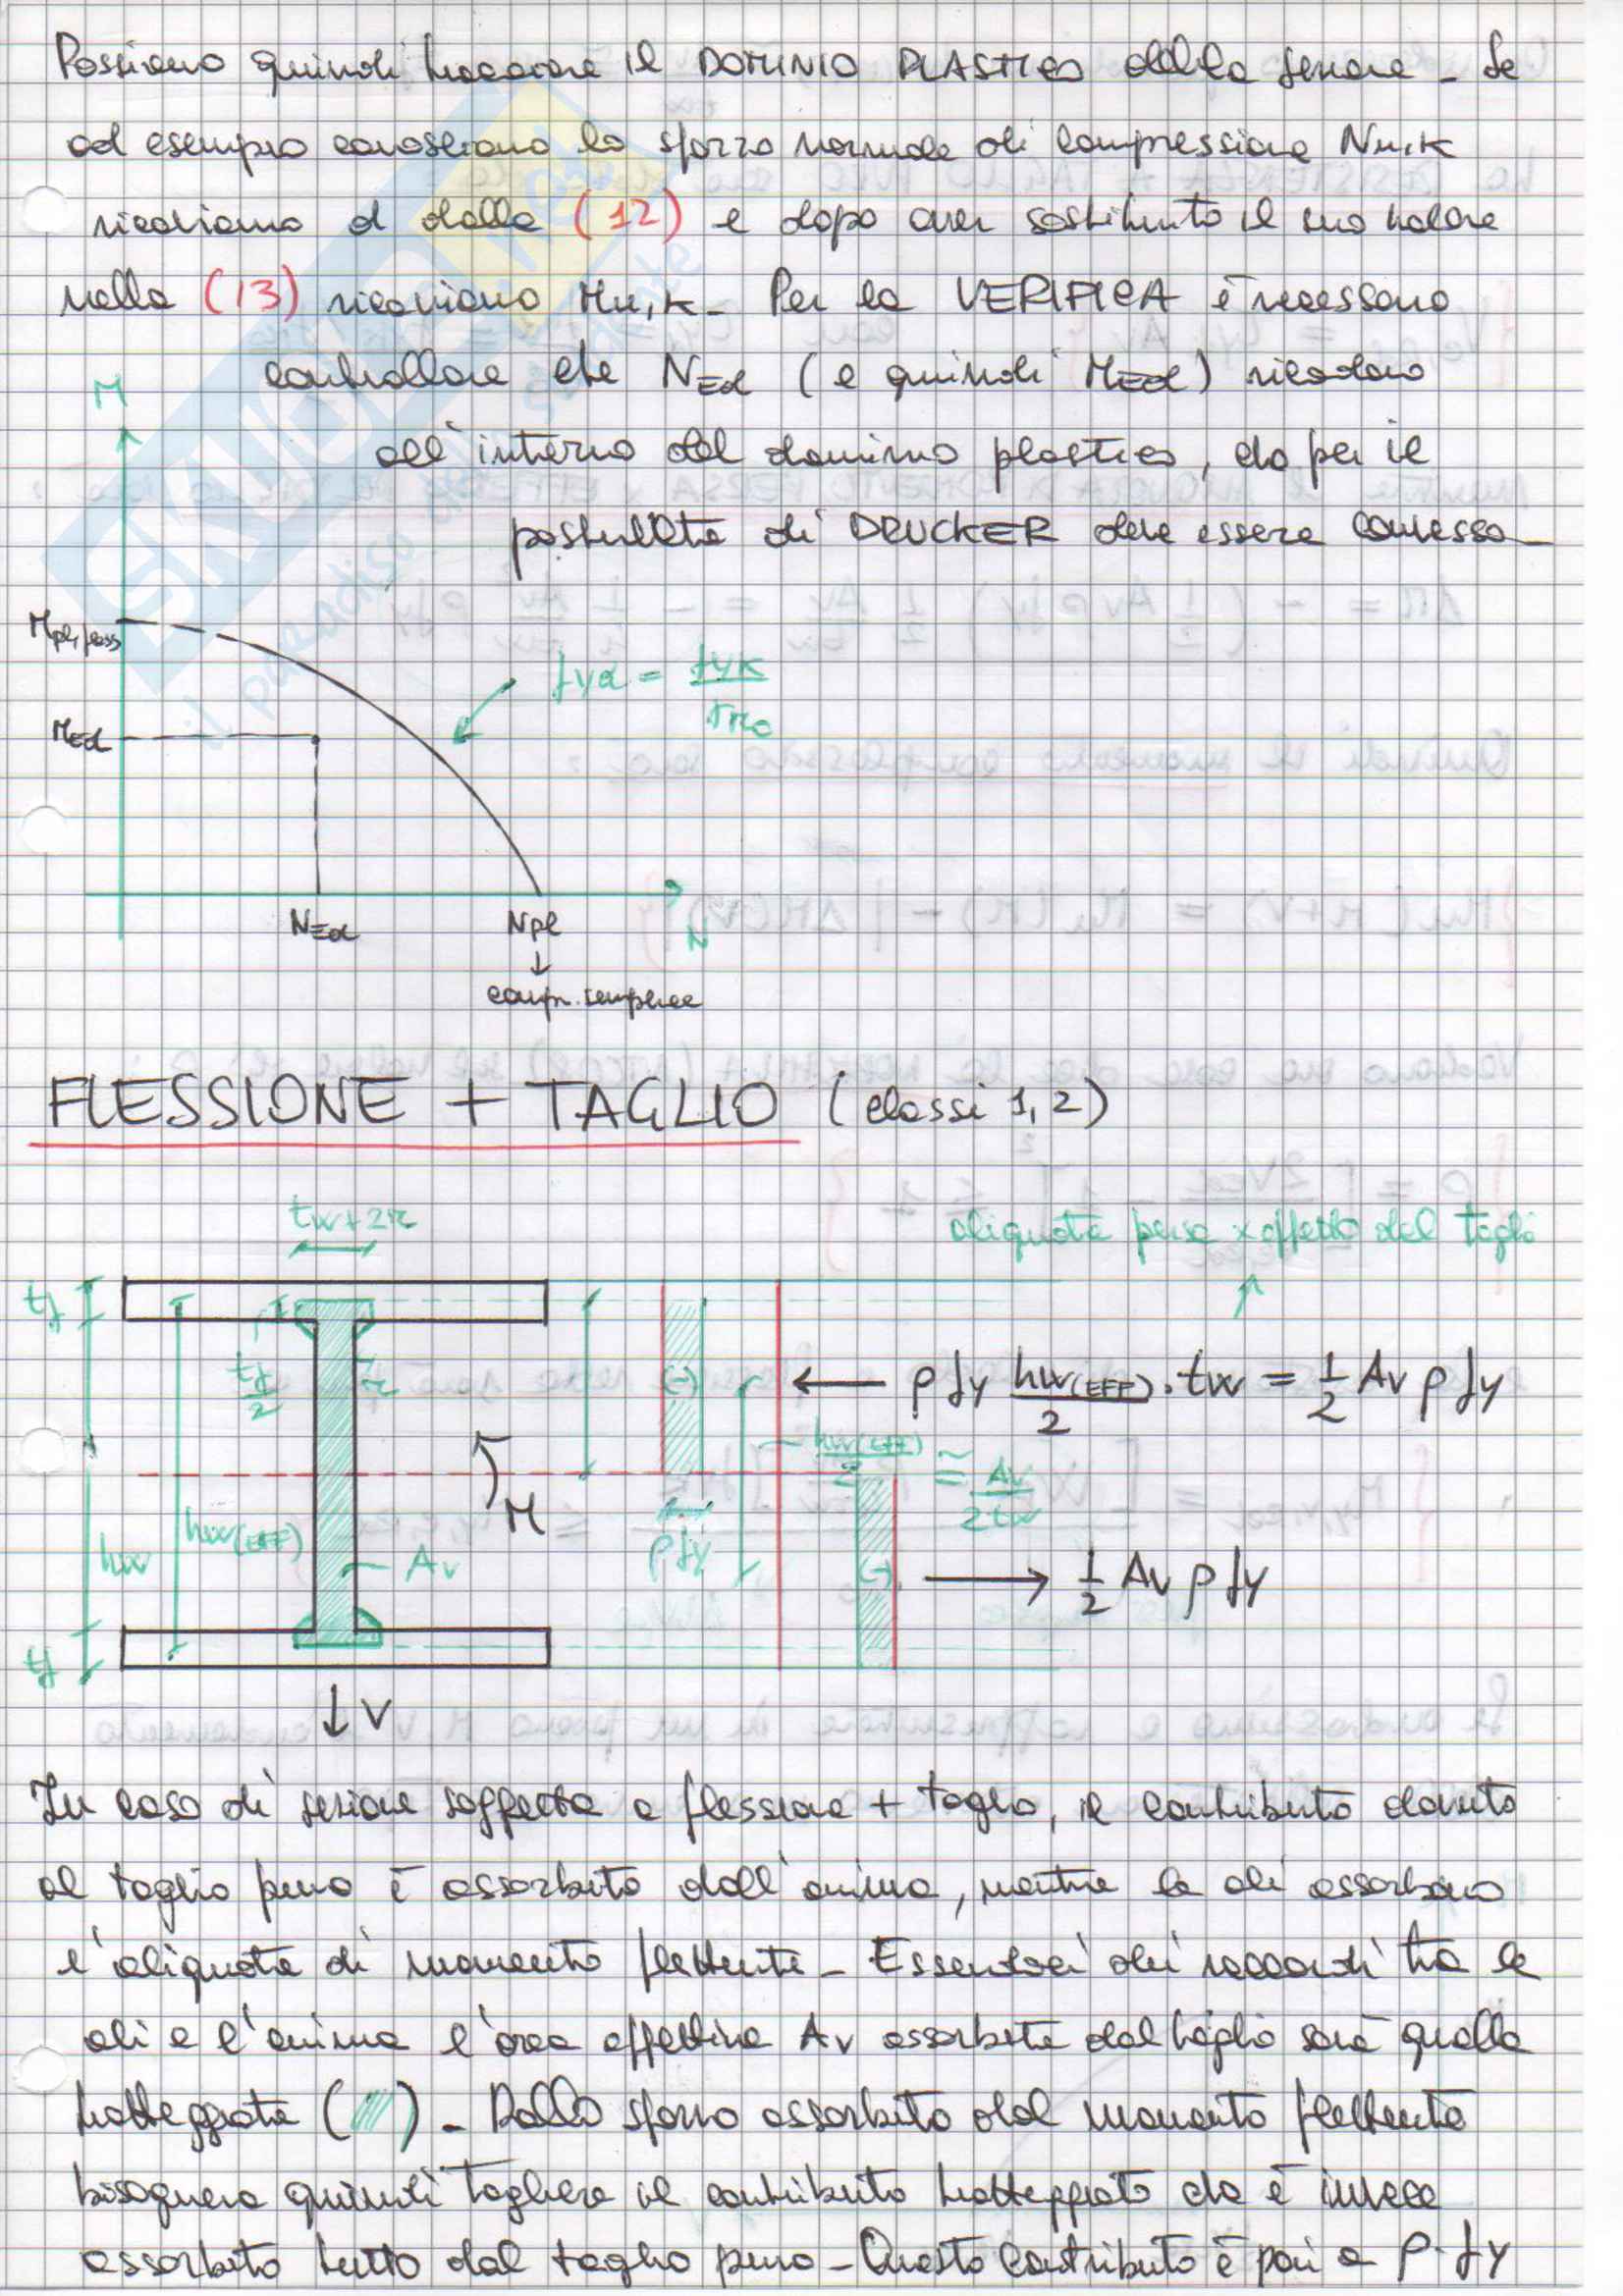 Possiamo quindi tracciare il DOMINIO PLASTICO della sezione - Se
ad esempio conosciamo lo sforzo normale di compressione Nu,k
ricaviamo d dalla (12) e dopo aver sostituito il suo valore
nella (13) ricaviamo Mu,k - Per la VERIFICA è necessario
controllare che NEd (e quindi MEd) ricadano
all'interno del dominio plastico, che per il
postulato di DRUCKER deve essere convesso
M
Mpl,fless
fyd = fyk / γM0
MEd
NEd
Npl
N
↓
compr. semplice
FLESSIONE + TAGLIO (classi 1, 2)
tw + 2r
aliquota persa x effetto del taglio
tf
tf/2
r
(-)
← ρ fy hw(EFF)/2 · tw = 1/2 Av ρ fy
hw(EFF)/2 ≅ Av/2tw
M
hw
hw(EFF)
Av
ρfy
(-)
→ 1/2 Av ρ fy
tf
↓ V
In caso di sezione soggetta a flessione + taglio, il contributo dovuto
al taglio puro è assorbito dall'anima, mentre le ali assorbono
l'aliquota di momento flettente - Essendoci dei raccordi tra le
ali e l'anima l'area effettiva Av assorbita dal taglio sarà quella
tratteggiata ( ) - Dallo sforzo assorbito dal momento flettente
bisognerà quindi togliere il contributo tratteggiato che è invece
assorbito tutto dal taglio puro - Questo contributo è pari a ρ·fy
SKUOLA.net
il paradiso dello studente